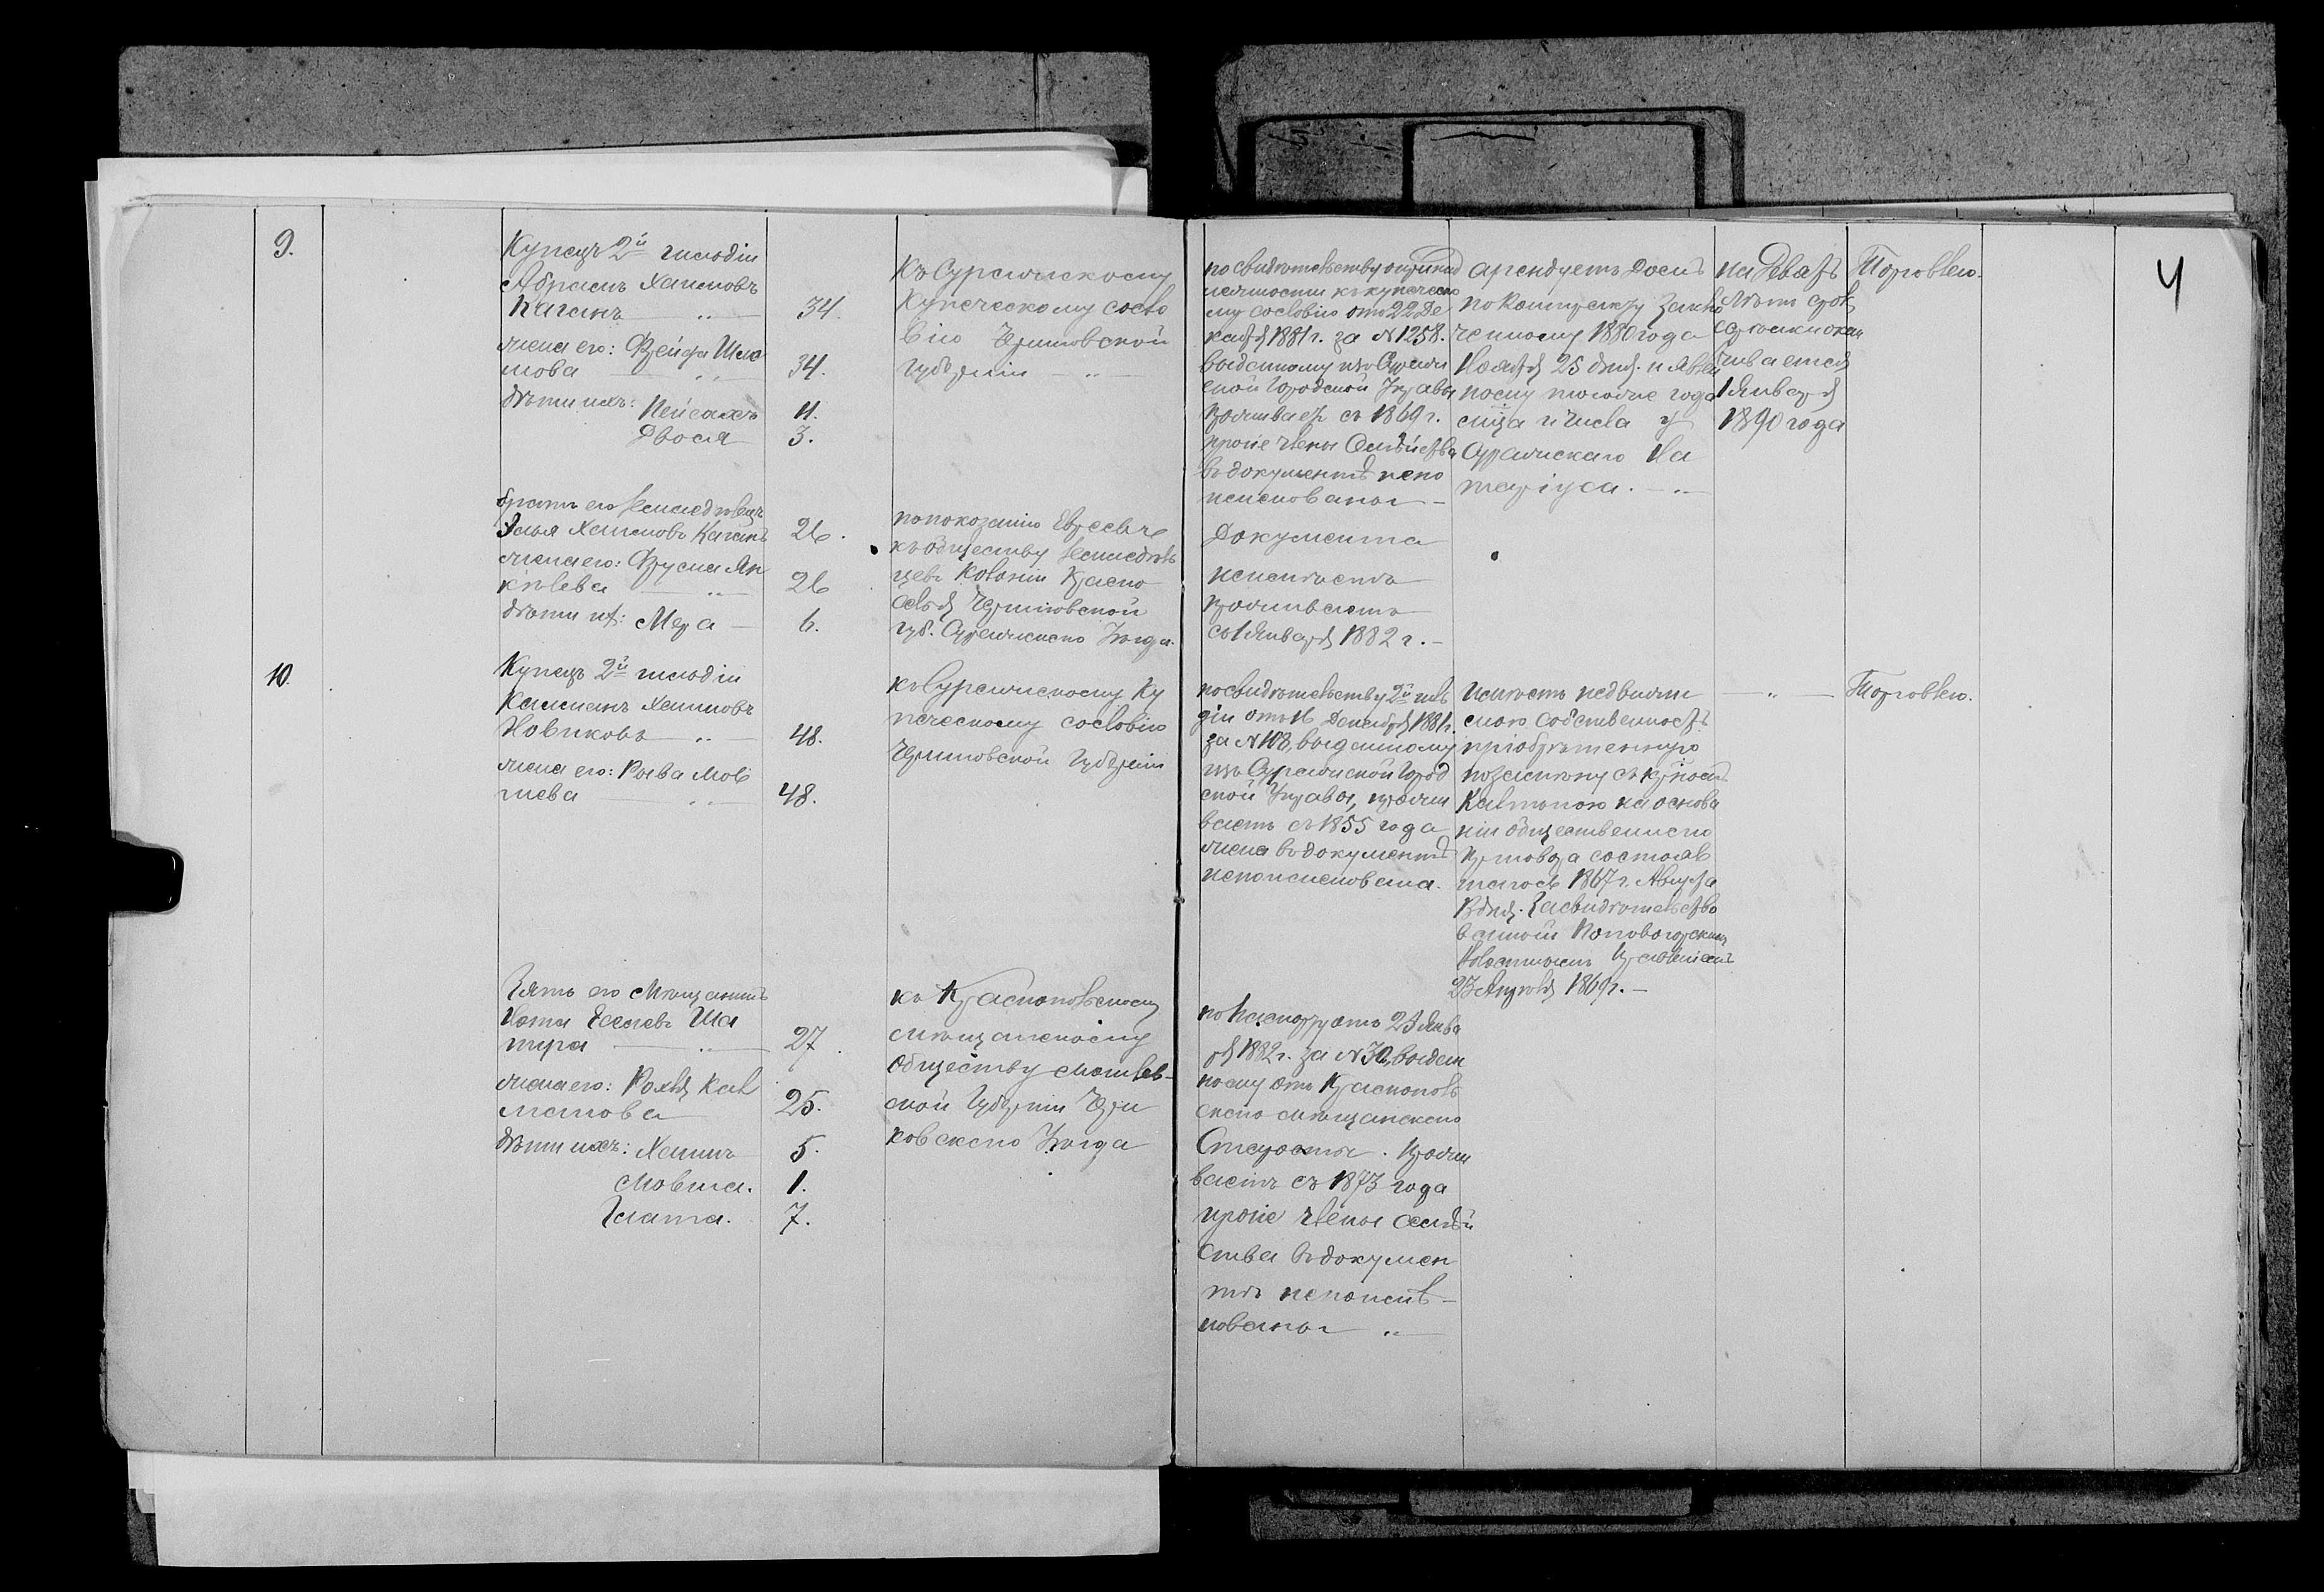 4
9.
Купецъ 2й гильдіи
Абрамъ Хаимовъ
Каганъ — „ — 34.
жена его: Фрейда Шло
мова — „ — 34.
дѣти ихъ: Пейсахъ 11.
Двося 3.
Къ Суражскому
Купеческому сосло
вію Черниговской
Губерніи — „ —
по свидѣтельству о принад
лежности къ купеческо
му сословію отъ 22 Де
кабря 1881 г. за № 1258.
выданному изъ Сураж
ской Городской Управы
проживаетъ съ 1869 г.
прочіе члены Семѣйства
въ документѣ непо
именованы —
арендуетъ Домъ
по Контракту заклю
ченному 1880 года
Ноября 25 дня. и явлен
ному тогоже года
мѣсяца и числа у
Суражскаго На
таріуса. — „
на Девять
лѣтъ срокъ
оканчивается
1 Января
1890 года
Торговлею.
братъ его Земледѣлецъ
Элья Хаимовъ Каганъ 26.
жена его: Фрума Ян
кѣлева — „ — 26
дѣти ихъ: Мера — 6.
по показанію Евреевъ
къ обществу Земледѣль
цевъ Колоніи Красно
селья Черниговской
губ. Суражскаго Уѣзда.
Документа
неимѣетъ
проживаетъ
съ 1 Января 1882 г. —
10.
Купецъ 2й гильдіи
Калманъ Хаимовъ
Новиковъ — „ — 48.
жена его: Рыва Мов
шева — „ — 48.
къ Суражскому Ку
печескому сословію
Черниговской Губерніи
по свидѣтельству 2й гиль
діи отъ 16 Декабря 1881 г.
за № 108, выданному
изъ Суражской Город
ской Управы, прожи
ваетъ съ 1855 года
жена въ документѣ
непоименована.
имѣетъ недвижи
мою собственность
пріобрѣтенную
Калманомъ на основа
ніи общественнаго
приговора состояв
шагося 1867 г. Августа
дня. Засвидѣтельство
ванной Поповогорскимъ
Волостнымъ Правленіемъ
23 Апрѣля 1869 г. —
— „ —
Торговлею.
Зять его Мѣщанинъ
Нота Веселевъ Ша
пира — „ — 27.
жена его: Рохля Кал
манова 25.
дѣти ихъ: Хаимъ 5.
Мовша. 1.
Злата. 7.
къ Краснопольскому
мѣщанскому
обществу Могилев-
ской Губерніи Чери
ковскаго Уѣзда
по паспорту отъ 23 Янва
ря 1882 г. за № 30, выдан
ному отъ Краснополь
скаго мѣщанскаго
Старосты. прожи
ваетъ съ 1873 года
прочіе члены Семѣй
ства въ докумен
тѣ непоиме-
нованы „